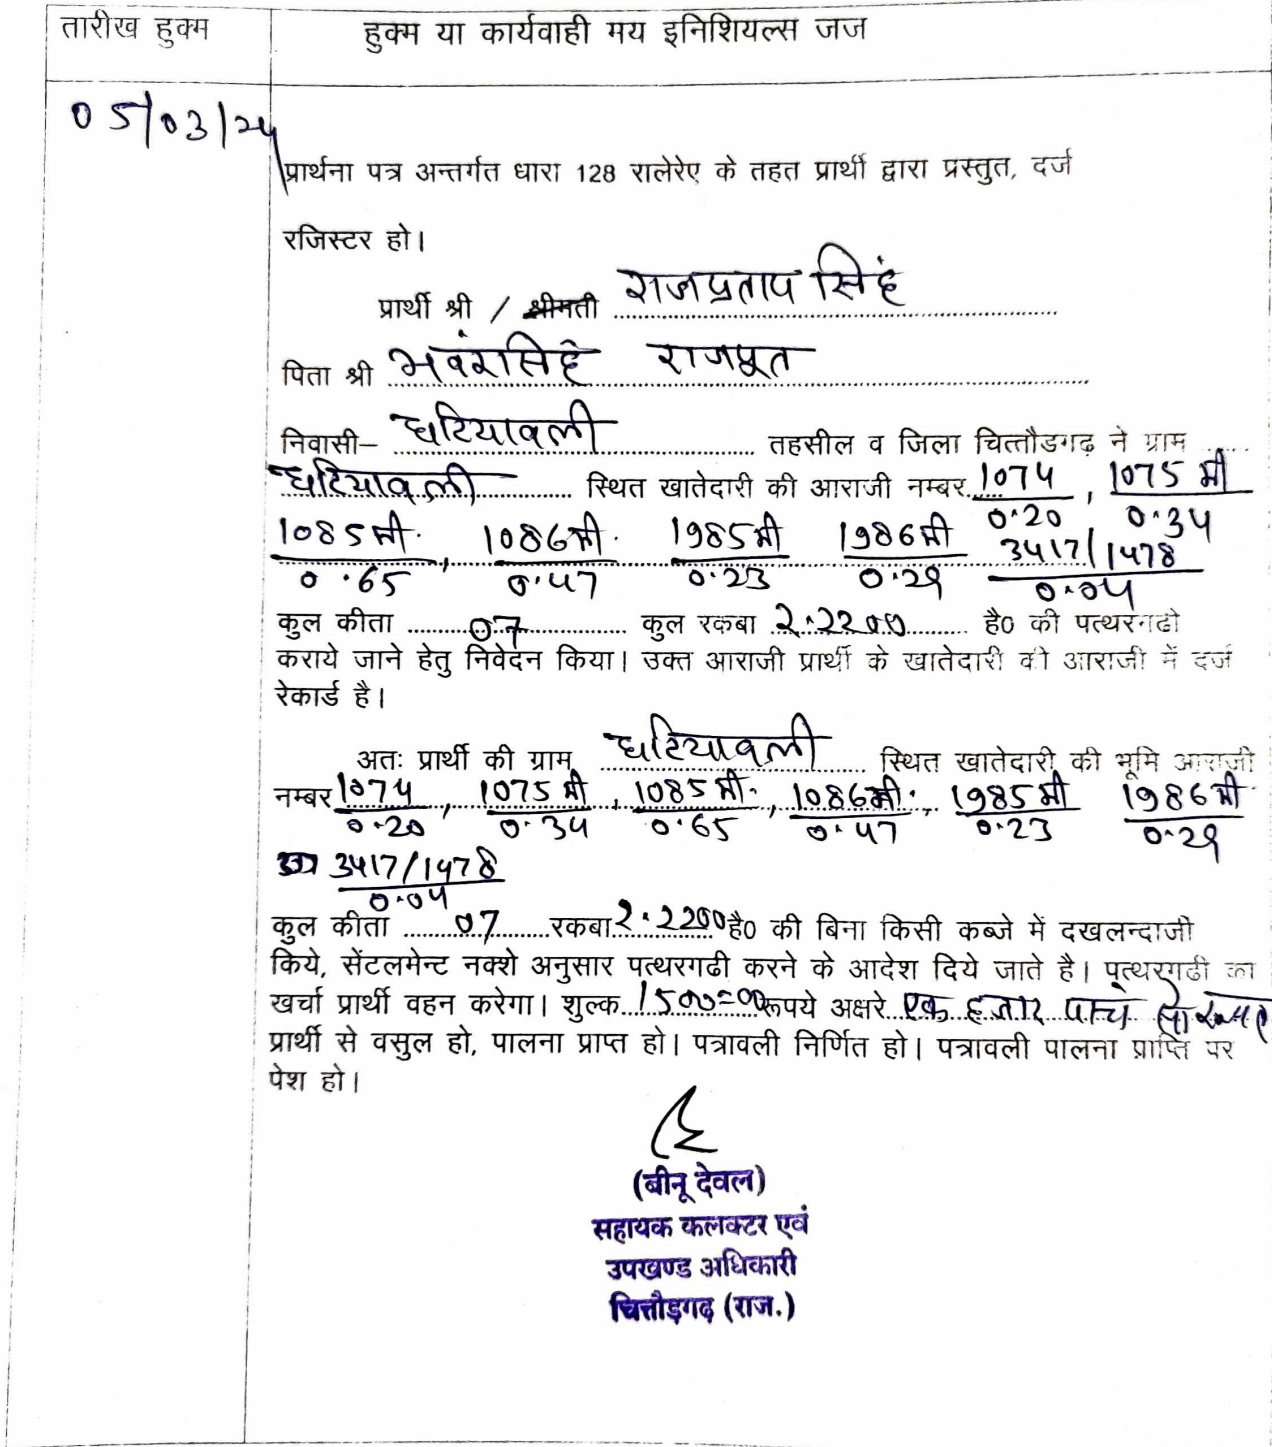 तारीख हुक्म
हुक्म या कार्यवाही मय इनिशियल्स जज
05/03/24
प्रार्थना पत्र अन्तर्गत धारा 128 रालेरेए के तहत प्रार्थी द्वारा प्रस्तुत, दर्ज
रजिस्टर हो।
प्रार्थी श्री / श्रीमती राजप्रताप सिंह
पिता श्री भवंरसिंह राजपूत
निवासी– घटियावली तहसील व जिला चित्तौडगढ़ ने ग्राम
घटियावली स्थित खातेदारी की आराजी नम्बर 1074/0.20, 1075 मी/0.34
1085 मी./0.65, 1086 मी./0.47 1985 मी/0.23 1986 मी/0.29 3417/1478/0.04
कुल कीता 07 कुल रकबा 2.2200 है0 की पत्थरगढी
कराये जाने हेतु निवेदन किया। उक्त आराजी प्रार्थी के खातेदारी की आराजी में दर्ज
रेकार्ड है।
अतः प्रार्थी की ग्राम घटियावली स्थित खातेदारी की भूमि आराजी
नम्बर 1074/0.20, 1075 मी/0.34, 1085 मी./0.65, 1086 मी./0.47, 1985 मी/0.23 1986 मी/0.29
3417/1478/0.04
कुल कीता 07 रकबा 2.2200 है0 की बिना किसी कब्जे में दखलन्दाजी
किये, सेंटलमेन्ट नक्शे अनुसार पत्थरगढी करने के आदेश दिये जाते है। पत्थरगढी का
खर्चा प्रार्थी वहन करेगा। शुल्क 1500=00 रूपये अक्षरे एक हजार पाच सो रूपए
प्रार्थी से वसुल हो, पालना प्राप्त हो। पत्रावली निर्णित हो। पत्रावली पालना प्राप्ति पर
पेश हो।
(बीनू देवल)
सहायक कलक्टर एवं
उपखण्ड अधिकारी
चित्तौड़गढ़ (राज.)